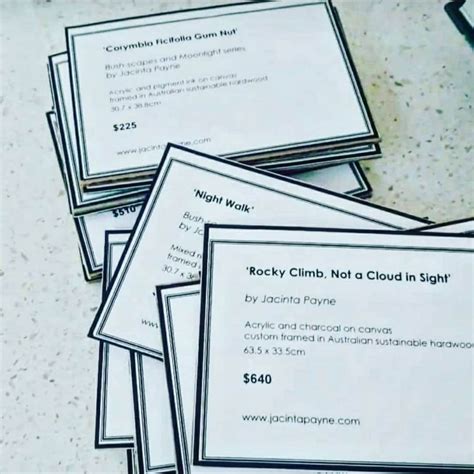 'Corymbia Ficifolia Gum Nut'
Bush-scapes and Moonlight series
by Jacinta Payne
Acrylic and pigment ink on canvas
framed in Australian sustainable hardwood
30.7 x 38.8cm
$225
www.jacintapayne.com
$510
'Night Walk'
Bush
by Ja
Mixed m
framed i
30.7 x 38
www
'Rocky Climb, Not a Cloud in Sight'
by Jacinta Payne
Acrylic and charcoal on canvas
custom framed in Australian sustainable hardwoo
63.5 x 33.5cm
$640
www.jacintapayne.com